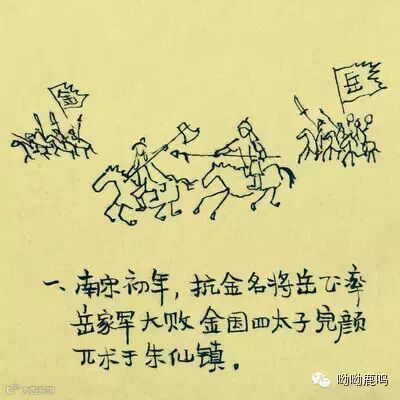 金
岳
一、南宋初年，抗金名将岳飞率
岳家军大败金国四太子完颜
兀术于朱仙镇。
呦呦鹿鸣